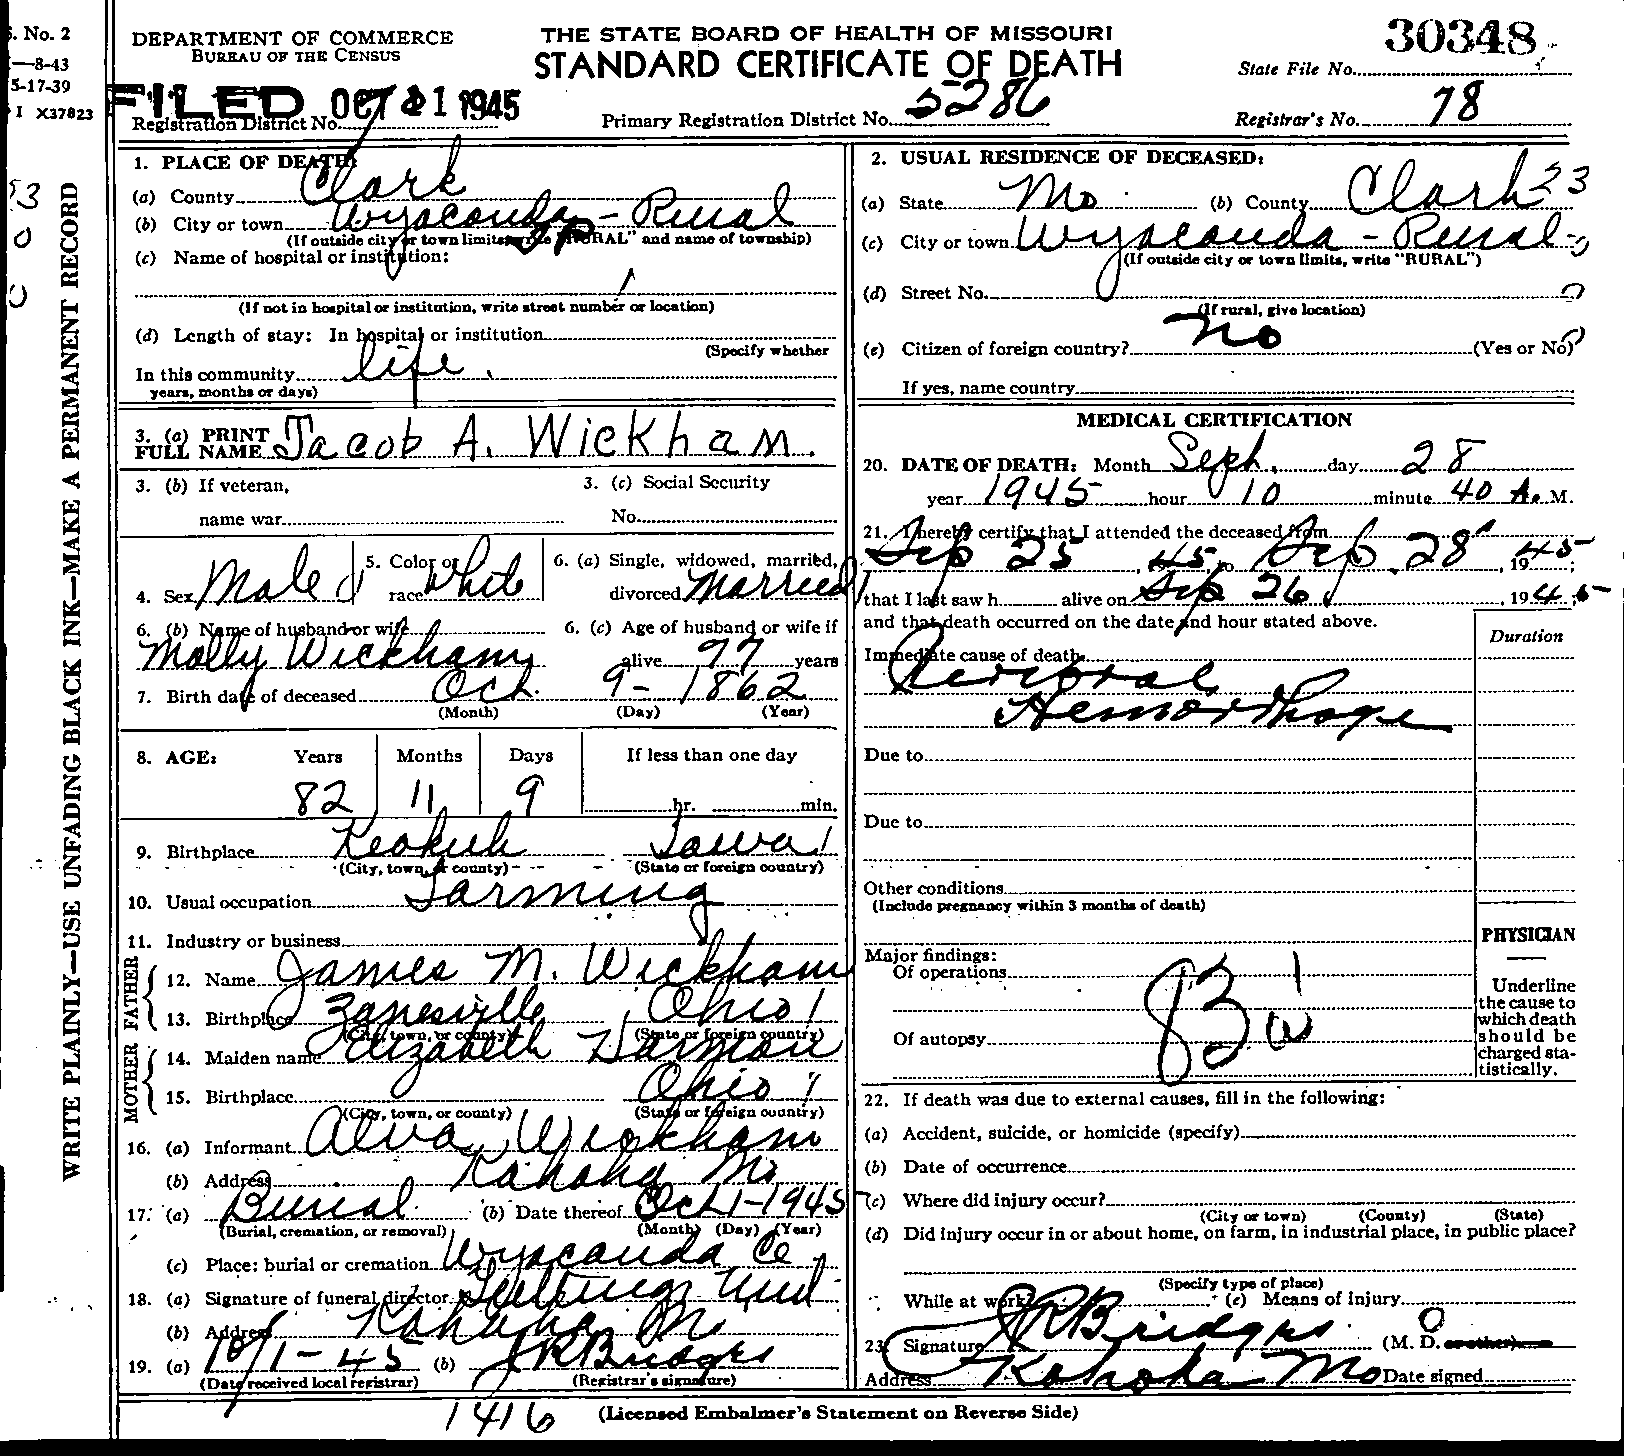 S. No. 2
—8-43
5-17-39
I X37823
WRITE PLAINLY—USE UNFADING BLACK INK—MAKE A PERMANENT RECORD
DEPARTMENT OF COMMERCE
BUREAU OF THE CENSUS
THE STATE BOARD OF HEALTH OF MISSOURI
STANDARD CERTIFICATE OF DEATH
30348
State File No.
FILED OCT 21 1945
Registration District No.
Primary Registration District No. 5286
Registrar's No. 78
1. PLACE OF DEATH:
(a) County Clark
(b) City or town Wyaconda - Rural
(If outside city or town limits, write "RURAL" and name of township)
(c) Name of hospital or institution:
(If not in hospital or institution, write street number or location)
(d) Length of stay: In hospital or institution
(Specify whether
In this community life.
years, months or days)
2. USUAL RESIDENCE OF DECEASED:
(a) State Mo. (b) County Clark 23
(c) City or town Wyaconda - Rural
(If outside city or town limits, write "RURAL")
(d) Street No.
(If rural, give location)
(e) Citizen of foreign country? no (Yes or No)
If yes, name country
3. (a) PRINT FULL NAME Jacob A. Wickham.
3. (b) If veteran,
name war
3. (c) Social Security
No.
4. Sex Male
5. Color or race White
6. (a) Single, widowed, married,
divorced Married
6. (b) Name of husband or wife
Molly Wickham
6. (c) Age of husband or wife if
alive 77 years
7. Birth date of deceased Oct. 9- 1862
(Month) (Day) (Year)
8. AGE: Years Months Days If less than one day
82 11 9 hr. min.
9. Birthplace Keokuk Iowa
(City, town, or county) (State or foreign country)
10. Usual occupation Farming
11. Industry or business
FATHER
12. Name James M. Wickham
13. Birthplace Zanesville Ohio
(City, town, or county) (State or foreign country)
MOTHER
14. Maiden name Elizabeth Harmon
15. Birthplace Ohio
(City, town, or county) (State or foreign country)
16. (a) Informant Alva Wickham
(b) Address Kahoka Mo
17. (a) Burial (b) Date thereof Oct 1-1945
(Burial, cremation, or removal) (Month) (Day) (Year)
(c) Place: burial or cremation Wyaconda Ce
18. (a) Signature of funeral director
(b) Address Kahoka Mo
19. (a) 10/1-45 (b) J R Bridges
(Date received local registrar) (Registrar's signature)
MEDICAL CERTIFICATION
20. DATE OF DEATH: Month Sept. day 28
year 1945 hour 10 minute 40 A. M.
21. I hereby certify that I attended the deceased from
Sep 25, 45, to Sep 28, 1945;
that I last saw h alive on Sep 26, 1945
and that death occurred on the date and hour stated above.
Duration
Immediate cause of death
Cerebral
Hemorrhage
Due to
Due to
Other conditions
(Include pregnancy within 3 months of death)
Major findings:
Of operations
Of autopsy
PHYSICIAN
Underline
the cause to
which death
should be
charged sta-
tistically.
22. If death was due to external causes, fill in the following:
(a) Accident, suicide, or homicide (specify)
(b) Date of occurrence
(c) Where did injury occur?
(City or town) (County) (State)
(d) Did injury occur in or about home, on farm, in industrial place, in public place?
(Specify type of place)
While at work? (e) Means of injury
23. Signature J R Bridges (M. D. or other)
Address Kahoka Mo Date signed
1416
(Licensed Embalmer's Statement on Reverse Side)